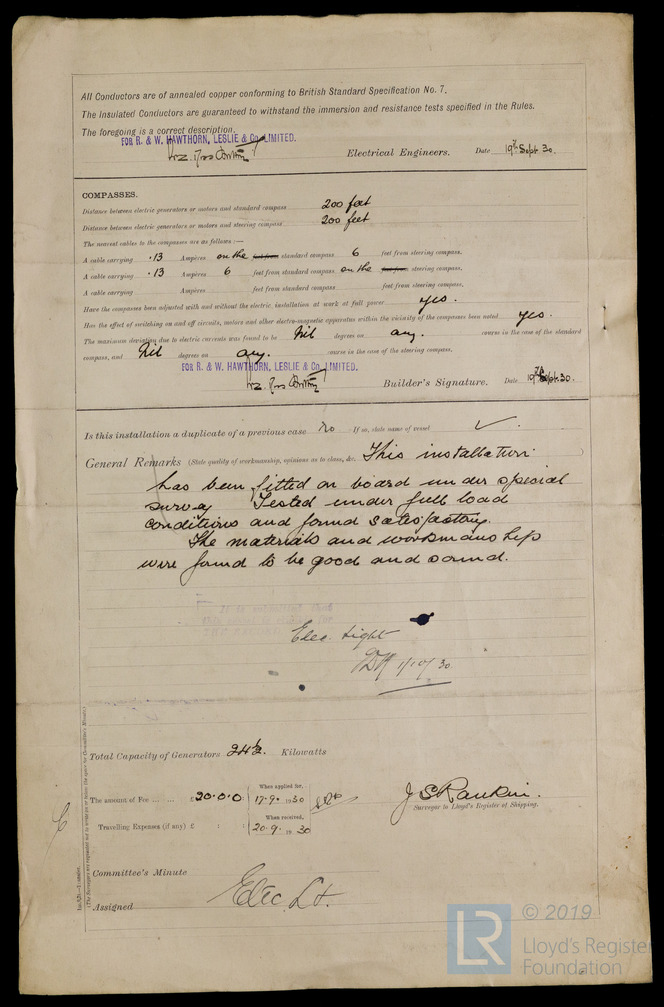 All Conductors are of annealed copper conforming to British Standard Specification No. 7.
The Insulated Conductors are guaranteed to withstand the immersion and resistance tests specified in the Rules.
The foregoing is a correct description.
FOR R. & W. HAWTHORN, LESLIE & Co. LIMITED.
Electrical Engineers. Date 19th Sept 30.
COMPASSES.
Distance between electric generators or motors and standard compass 200 feet
Distance between electric generators or motors and steering compass 200 feet
The nearest cables to the compasses are as follows:—
A cable carrying .13 Ampères on the feet from standard compass 6 feet from steering compass.
A cable carrying .13 Ampères 6 feet from standard compass on the feet from steering compass.
A cable carrying Ampères feet from standard compass feet from steering compass.
Have the compasses been adjusted with and without the electric installation at work at full power yes.
Has the effect of switching on and off circuits, motors and other electro-magnetic apparatus within the vicinity of the compasses been noted yes.
The maximum deviation due to electric currents was found to be Nil degrees on any. course in the case of the standard
compass, and Nil degrees on any. course in the case of the steering compass.
FOR R. & W. HAWTHORN, LESLIE & Co. LIMITED.
Builder's Signature. Date 19th Sept. 30.
Is this installation a duplicate of a previous case no If so, state name of vessel ✓
General Remarks (State quality of workmanship, opinions as to class, &c. This installation
has been fitted on board under special
survey Tested under full load
conditions and found satisfactory.
The materials and workmanship
were found to be good and sound.
Elec. Light
1/10/30
Total Capacity of Generators 24½ Kilowatts
The amount of Fee ... ... £20.0.0 When applied for, 17.9. 1930
J S Rankin.
Surveyor to Lloyd's Register of Shipping.
Travelling Expenses (if any) £ : : When received, 20.9. 1930
Committee's Minute
Assigned Elec. Lt.
© 2019
LR
Lloyd's Register
Foundation